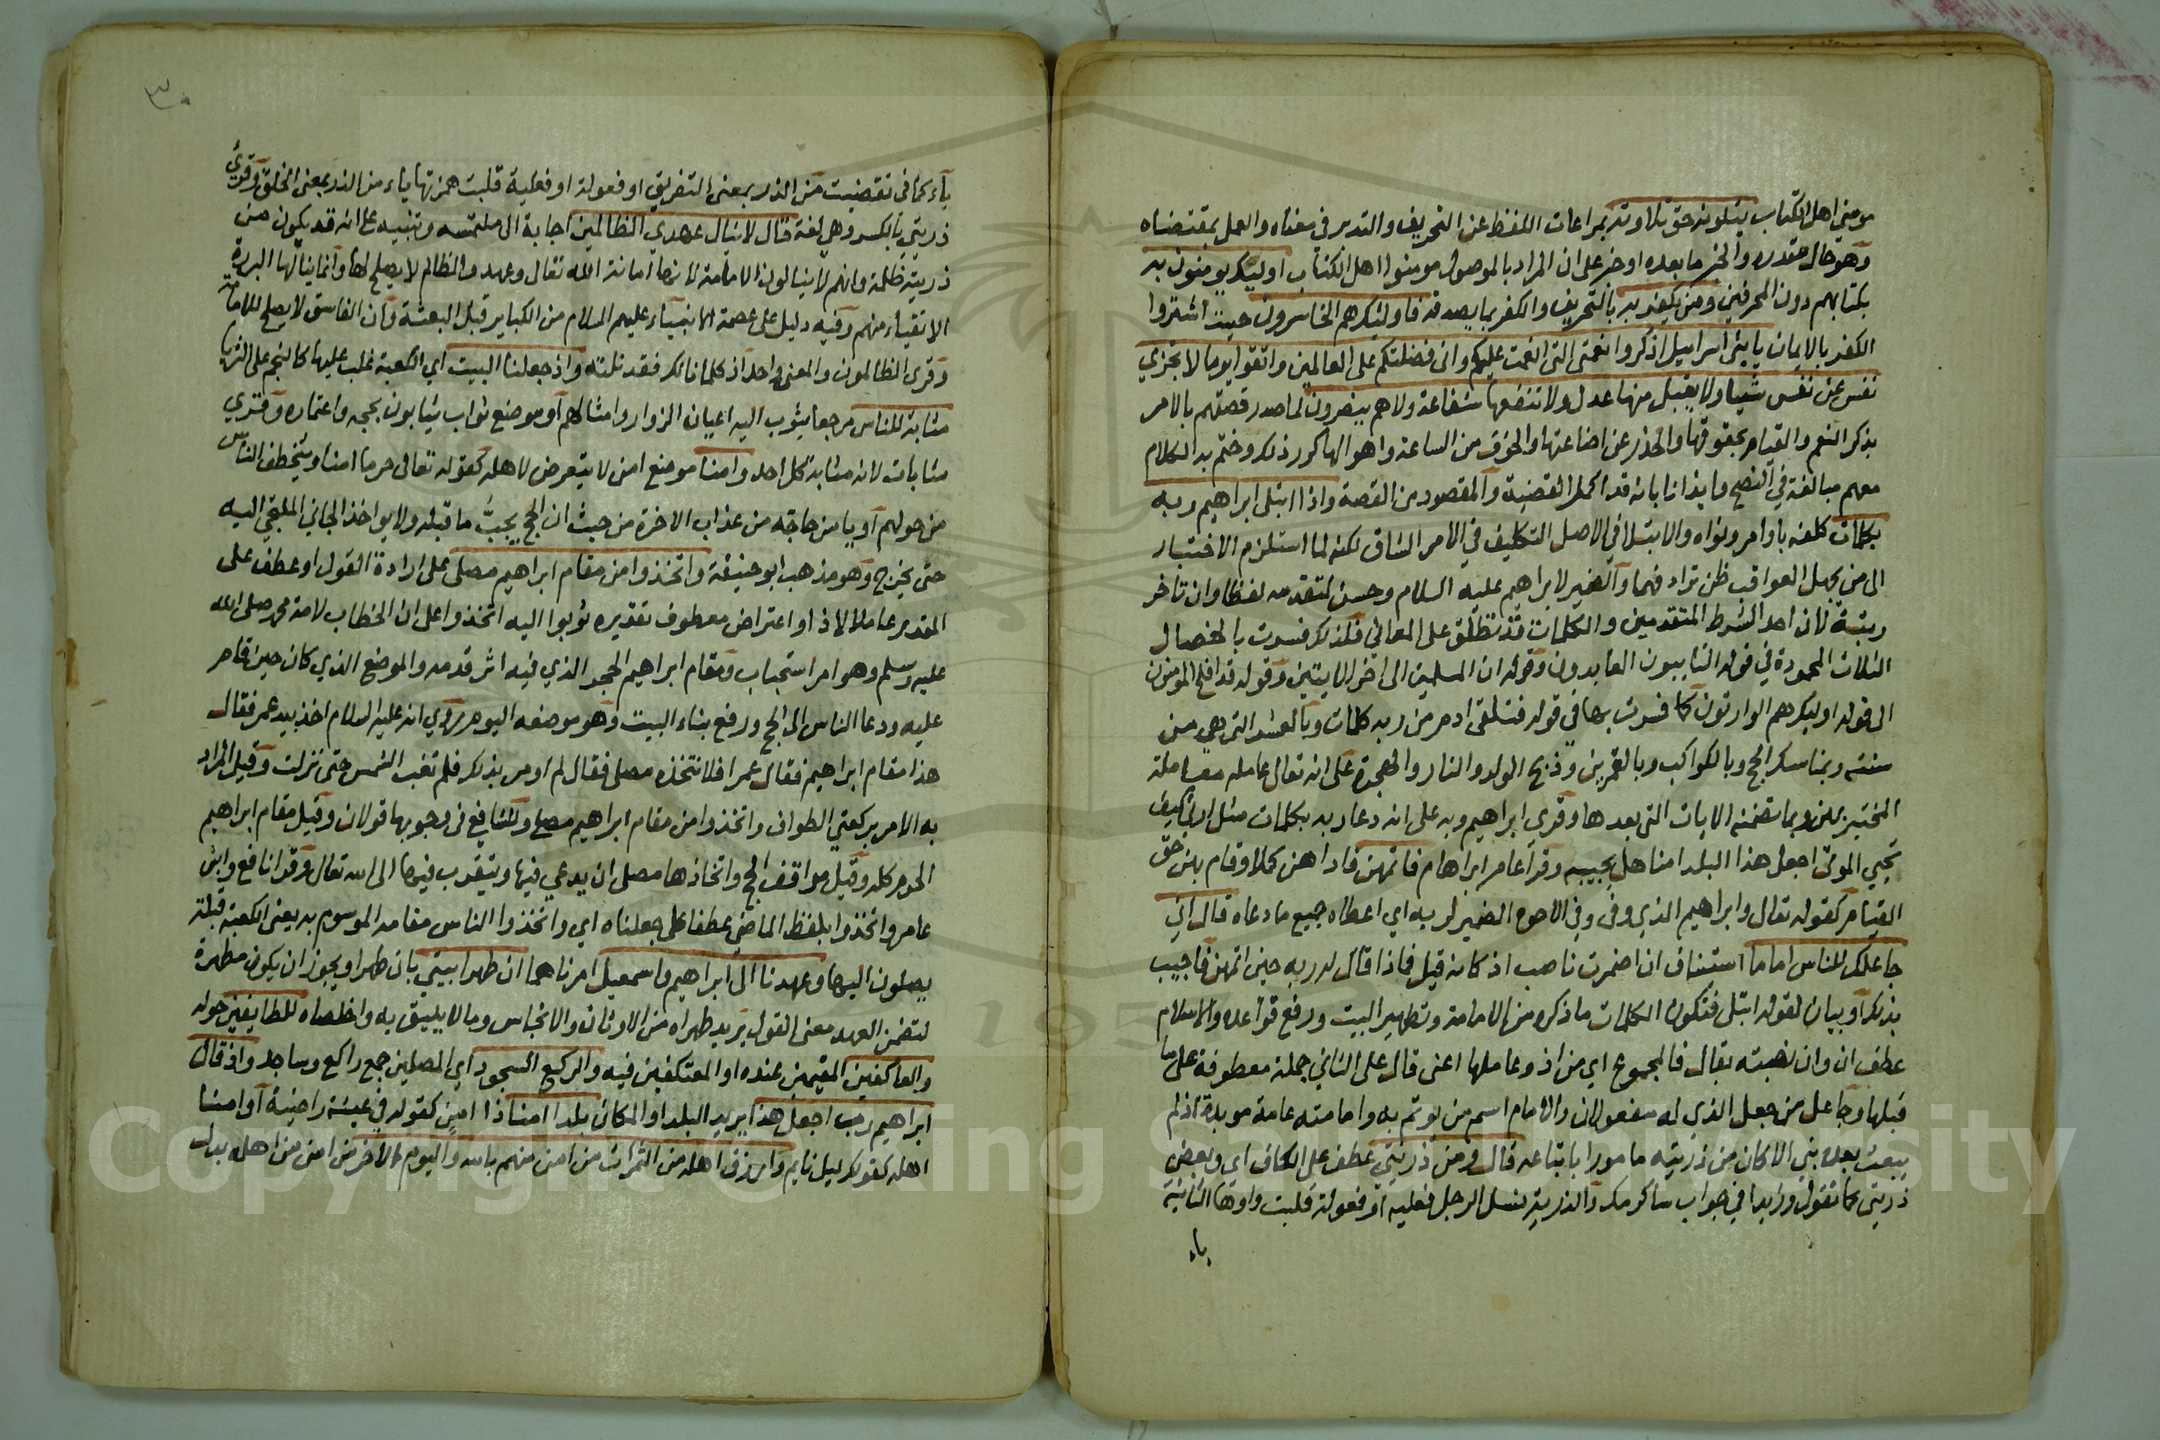 مومني اهل الكتاب يتلونه حق تلاوته بمراعات اللفظ عن التحريف والتدبر في معناه والعمل بمقتضاه
وهو حال مقدره والخبر ما بعده او خبر على ان المراد بالموصول مومنوا اهل الكتاب اوليك يومنون به
بكتابهم دون المحرفين ومن يكفر به بالتحريف والكفر بما يصدقه فاوليك هم الخاسرون حيث اشتروا
الكفر بالايمان يا بني اسرايل اذكروا نعمتي التي انعمت عليكم واني فضلتكم على العالمين واتقوا يوما لا تجزي
نفس عن نفس شيا ولا يقبل منها عدل ولا تنفعها شفاعة ولا هم ينصرون لما صدر قصتهم بالامر
بذكر النعم والقيام بحقوقها والحذر عن اضاعتها والخوف من الساعة واهوالها كرر ذلك وختم به الكلام
معهم مبالغة في النصح وايذانا بانه فذلكة القضية والمقصود من القصة واذا ابتلى ابراهيم ربه
بكلمات كلفه باوامر ونواه والابتلا في الاصل التكليف في الامر الشاق لكنه لما استلزم الاختبار
الى من يجهل العواقب ظن ترادفهما والضمير لابراهيم عليه السلام وحسن لتقدمه لفظا وان تاخر
رتبة لان احد الشرط المتقدمين والكلمات قد تطلق على المعاني فلذلك فسرت بالخصال
الثلاث المحمودة في قوله التايبون العابدون وقوله ان المسلمين الى اخر الايتين وقوله قد افلح المومنون
الى قوله اوليك هم الوارثون كما فسرت بها في قوله فتلقى ادم من ربه كلمات وبالعشر التي هي من
سننه وبمناسك الحج وبالكواكب وبالقمرين وذبح الولد والنار والهجرة على انه تعالى عامله معاملة
المختبر بهن وبما تضمنه الايات التي بعدها وقري ابراهيم وبه على انه دعا ربه بكلمات مثل ارني كيف
تحيي الموتى اجعل هذا البلد امنا هل يجيبه وقرا عامر ابراهام فاتمهن فاداهن كملا وقام بهن حق
القيام كقوله تعالى وابراهيم الذي وفى وفي الاخرى الضمير لربه اي اعطاه جميع ما دعاه قال اني
جاعلك للناس اماما استيناف ان اضمرت ناصب اذ كانه قيل فماذا قال له ربه حين اتمهن فاجيب
بذلك او بيان لقوله ابتلى فتكون الكلمات ما ذكره من الامامة وتطهير البيت ورفع قواعده والاسلام
عطف ان وان نصبته بقال فالمجموع اي من اذ وعاملها اعني قال على الثاني جملة معطوفة على ما
قبلها وجاعل من جعل الذي له مفعولان والامام اسم من يوتم به وامامته عامة موبدة اذ لم
يبعث بعده نبي الا كان من ذريته مامورا باتباعه قال ومن ذريتي عطف على الكاف اي وبعض
ذريتي كما تقول وزيدا في جواب ساكرمك والذرية نسل الرجل فعلية او فعولة قلبت واوها الثانية
ياء
٣٠
ياء كما في تقضيت من الذر بمعنى التفريق او فعولة او فعلية قلبت همزتها ياء من الذر بمعنى الخلق وقري
ذريتي بالكسر وهي لغة قال لا ينال عهدي الظالمين اجابة الى ملتمسه وتنبيه على انه قد يكون من
ذريته ظلمة وانهم لا ينالون الامامة لانها امانة الله تعالى وعهده والظالم لا يصلح لها وانما ينالها البررة
الاتقياء منهم وفيه دليل على عصمة الانبياء عليهم السلام من الكباير قبل البعثة وان الفاسق لا يصلح للامامة
وقرى الظالمون والمعنى واحد اذ كلما نالك فقد نلته واذ جعلنا البيت اي الكعبة غلب عليها كالنجم على الثريا
مثابة للناس مرجعا يثوب اليه اعيان الزوار وامثالهم او موضع ثواب يثابون بحجه واعتماره وقري
مثابات لانه مثابة كل احد وامنا موضع امن لا يتعرض لاهله كقوله تعالى حرما امنا ويتخطف الناس
من حولهم او يامن حاجه من عذاب الاخرة من حيث ان الحج يجب ما قبله ولا يواخذ الجاني الملتجي اليه
حتى يخرج وهو مذهب ابو حنيفة واتخذوا من مقام ابراهيم مصلى على ارادة القول او عطف على
المقدر عاملا لاذ او اعتراض معطوف تقديره ثوبوا اليه اتخذوا على ان الخطاب لامة محمد صلى الله
عليه وسلم وهو امر استحباب ومقام ابراهيم الحجر الذي فيه اثر قدمه والموضع الذي كان حين قام
عليه ودعا الناس الى الحج ورفع بناء البيت وهو موضعه اليوم روي انه عليه السلام اخذ بيد عمر فقال
هذا مقام ابراهيم فقال عمر افلا نتخذه مصلى فقال لم اومر بذلك فلم تغب الشمس حتى نزلت وقيل المراد
به الامر بركعتي الطواف واتخذوا من مقام ابراهيم مصلى وللشافعي في وجوبها قولان وقيل مقام ابراهيم
الحرم كله وقيل مواقف الحج واتخاذها مصلى ان يدعي فيها ويتقرب فيها الى الله تعالى وقرا نافع وابن
عامر واتخذوا بلفظ الماضي عطفا على جعلناه اي واتخذوا الناس مقامه الموسوم به يعني الكعبة قبلة
يصلون اليها وعهدنا الى ابراهيم واسمعيل امرناهما ان طهرا بيتي بان طهرا ويجوز ان يكون مطهرة
لتضمن العهد معنى القول يريد طهراه من الاوثان والانجاس وما لا يليق به واخلصاه للطايفين حوله
والعاكفين المقيمين عنده او المعتكفين فيه والركع السجود اي المصلين جمع راكع وساجد واذ قال
ابراهيم رب اجعل هذا يريد البلد او المكان بلدا امنا ذا امن كقوله في عيشة راضية او امنا
اهله كقولك ليل نايم وارزق اهله من الثمرات من امن منهم بالله واليوم الاخر من امن من اهله بدل